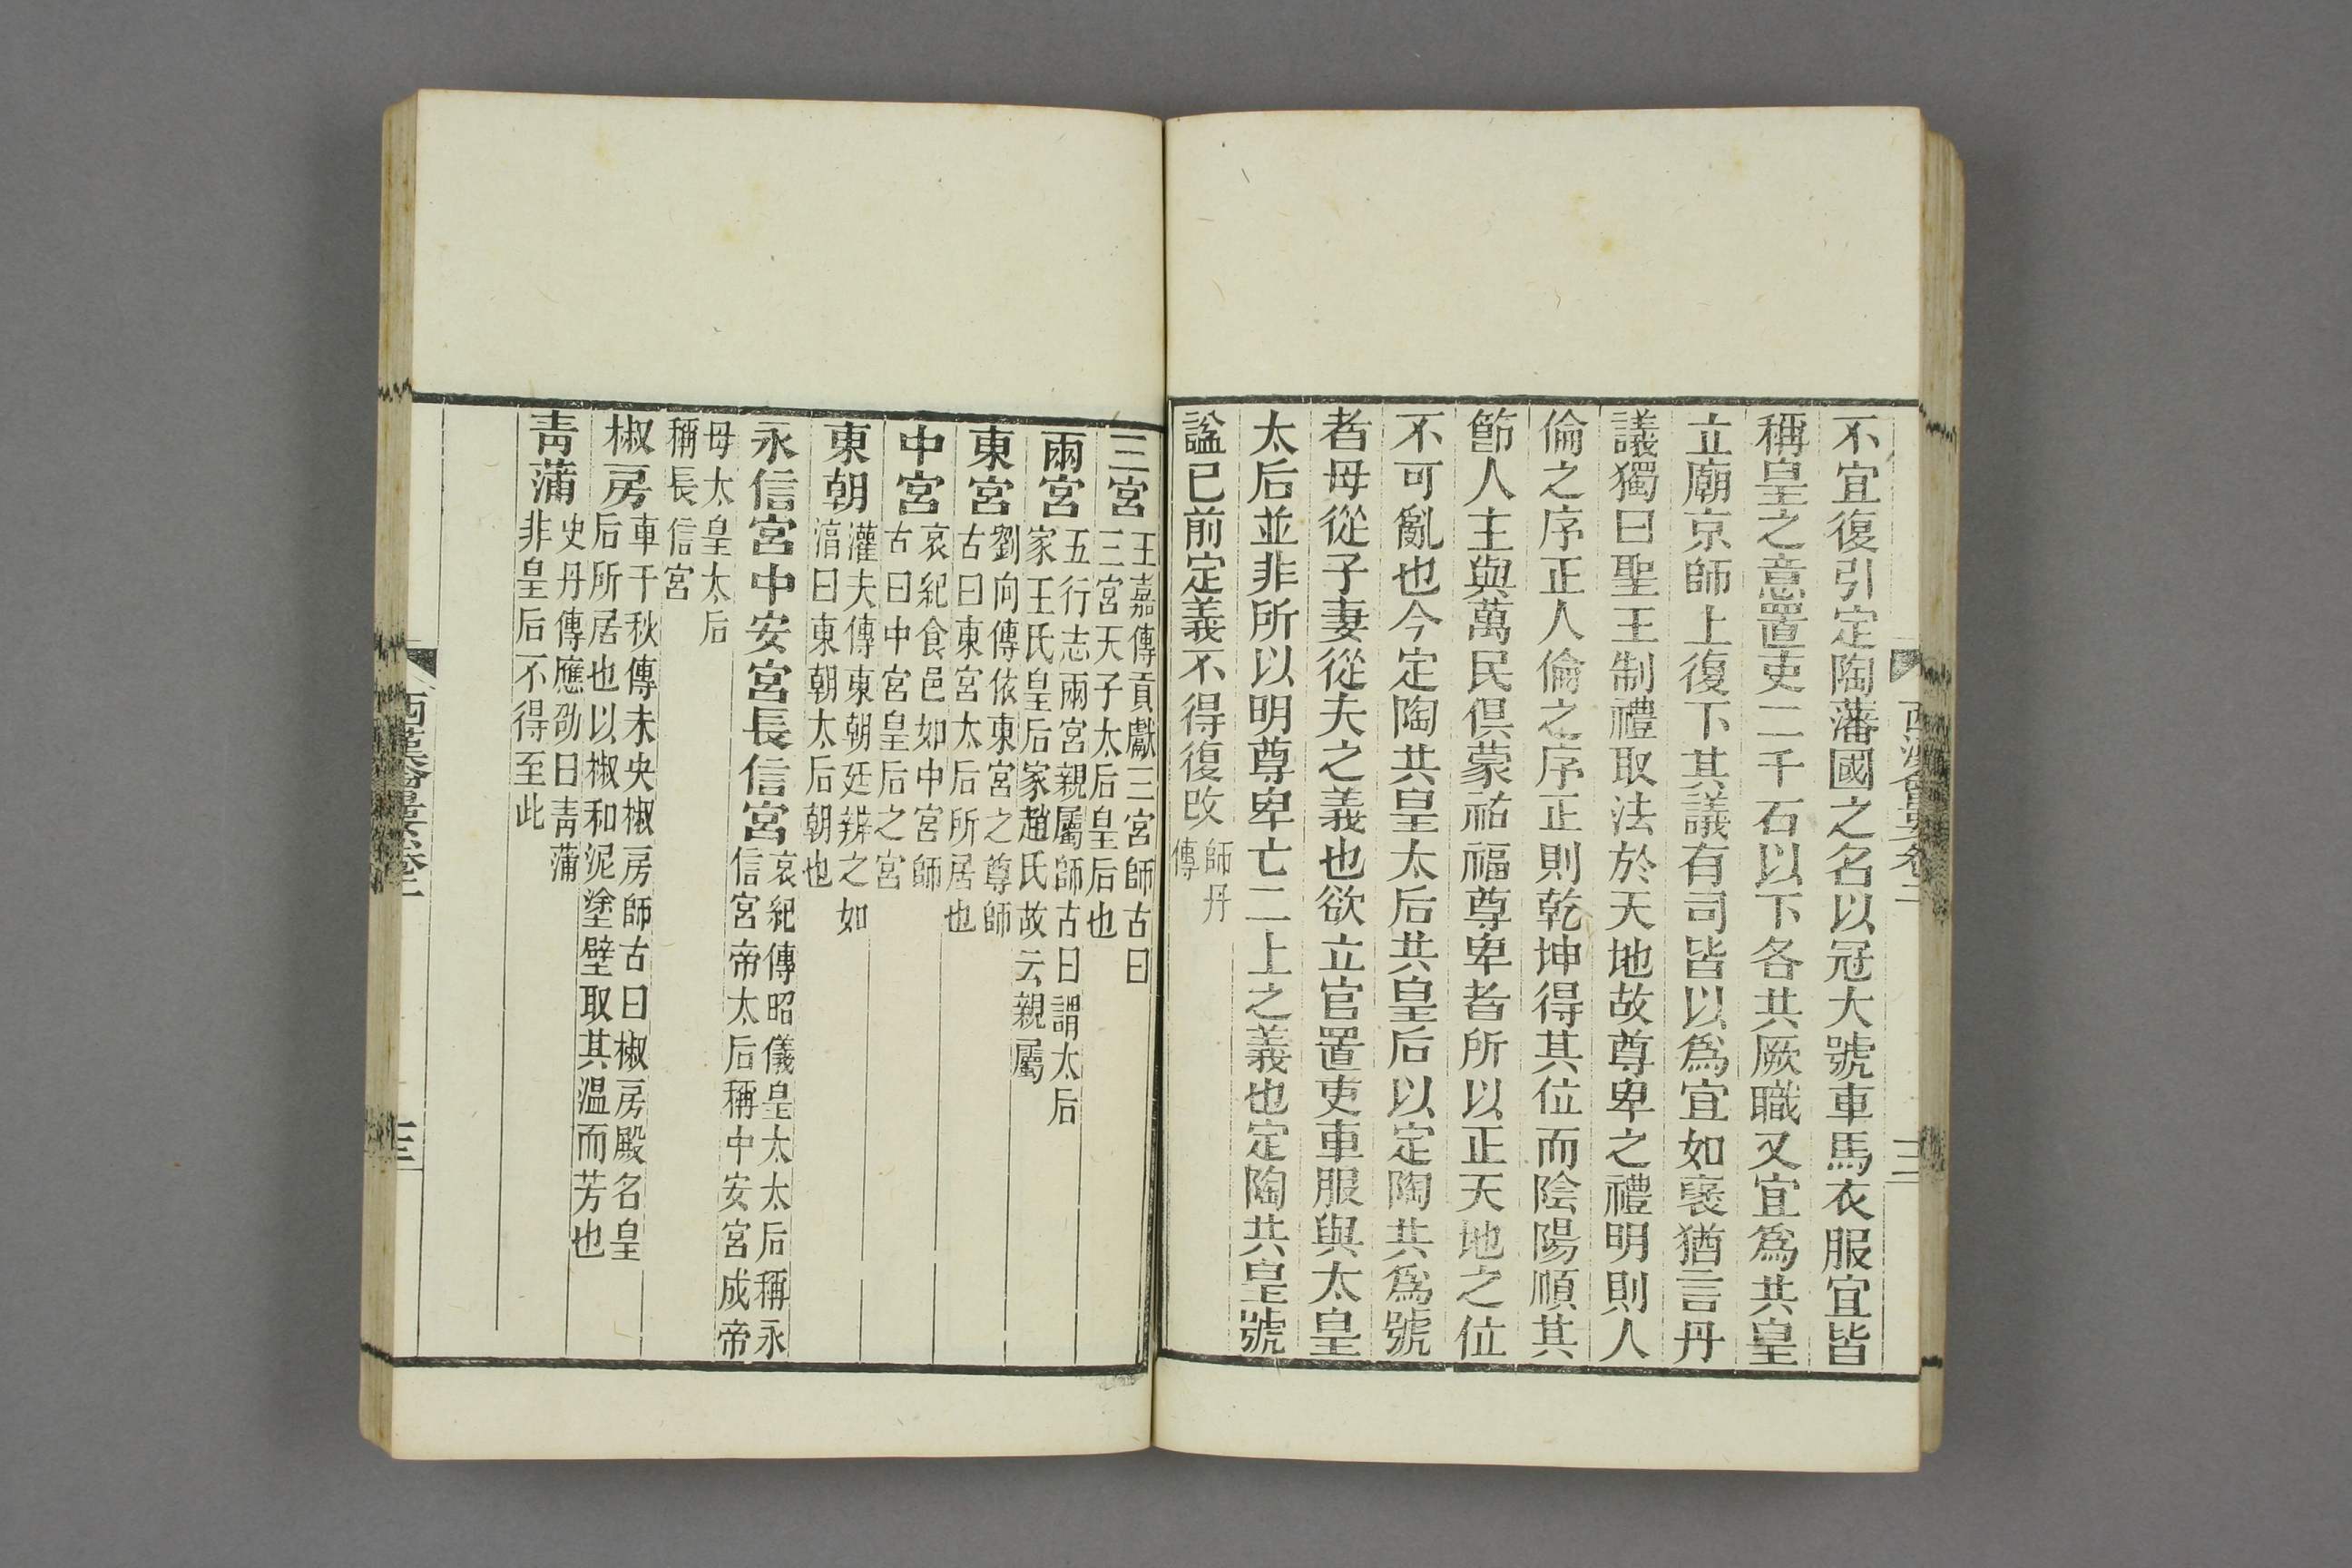 不宜復引定陶藩國之名以冠大號車馬衣服宜皆
稱皇之意置吏二千石以下各共厥職又宜爲共皇
立廟京師上復下其議有司皆以爲宜如襃猶言丹
議獨曰聖王制禮取法於天地故尊卑之禮明則人
倫之序正人倫之序正則乾坤得其位而陰陽順其
節人主與萬民俱蒙祐福尊卑者所以正天地之位
不可亂也今定陶共皇太后共皇后以定陶共爲號
者母從子妻從夫之義也欲立官置吏車服與太皇
太后並非所以明尊卑亡二上之義也定陶共皇號
諡已前定義不得復改師丹
傳
三宮王嘉傳貢獻三宮師古曰
三宮天子太后皇后也
兩宮五行志兩宮親屬師古曰謂太后
家王氏皇后家趙氏故云親屬
東宮劉向傳依東宮之尊師
古曰東宮太后所居也
中宮哀紀食邑如中宮師
古曰中宮皇后之宮
東朝灌夫傳東朝廷辨之如
淳曰東朝太后朝也
永信宮中安宮長信宮哀紀傳昭儀皇太太后稱永
信宮帝太后稱中安宮成帝
母太皇太后
稱長信宮
椒房車千秋傳未央椒房師古曰椒房殿名皇
后所居也以椒和泥塗壁取其溫而芳也
靑蒲史丹傳應劭曰靑蒲
非皇后不得至此
西漢會要卷二